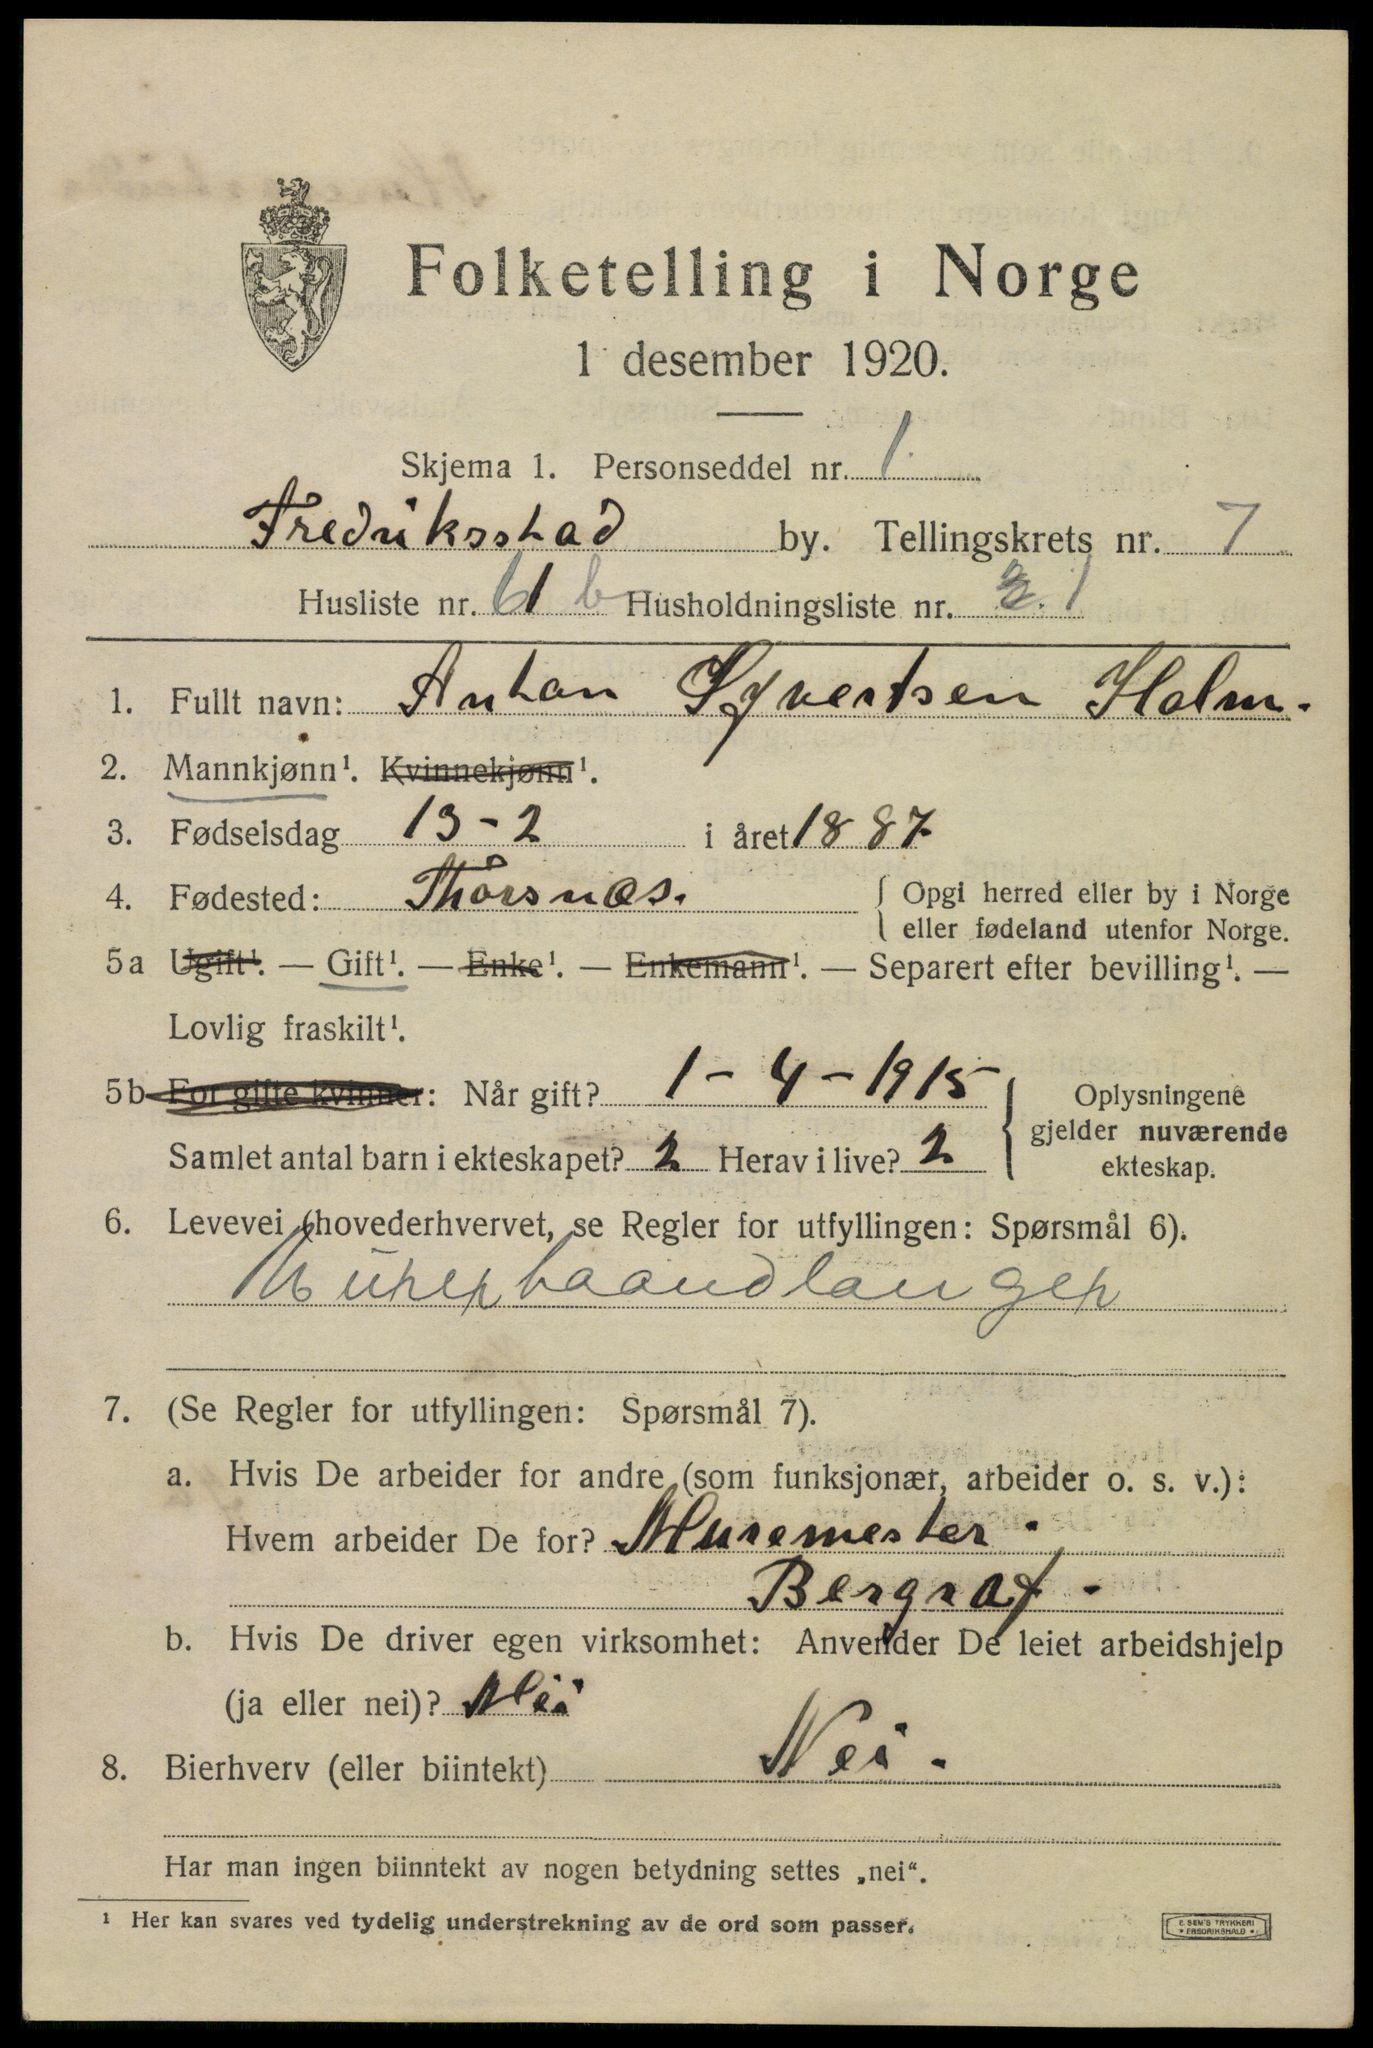 Folketelling i Norge
1 desember 1920.
Skjema 1. Personseddel nr. 1
Fredriksstad by. Tellingskrets nr. 7
Husliste nr. 61 b Husholdningsliste nr. 1
1. Fullt navn: Anton Syvertsen Holm.
2. Mannkjønn¹. Kvinnekjønn¹.
3. Fødselsdag 13-2 i året 1887
4. Fødested: Thorsnæs. { Opgi herred eller by i Norge
eller fødeland utenfor Norge.
5a Ugift¹. — Gift¹. — Enke¹. — Enkemann¹. — Separert efter bevilling¹. —
Lovlig fraskilt¹.
5b For gifte kvinner: Når gift? 1-4-1915 { Oplysningene
gjelder nuværende
Samlet antal barn i ekteskapet? 2 Herav i live? 2
ekteskap.
6. Levevei (hovederhvervet, se Regler for utfyllingen: Spørsmål 6).
Murerhaandlanger
7. (Se Regler for utfyllingen: Spørsmål 7).
a. Hvis De arbeider for andre (som funksjonær, arbeider o. s. v.):
Hvem arbeider De for? Muremester
Bergraf -
b. Hvis De driver egen virksomhet: Anvender De leiet arbeidshjelp
(ja eller nei)? Nei
8. Bierhverv (eller biintekt) Nei -
Har man ingen biinntekt av nogen betydning settes „nei“.
¹ Her kan svares ved tydelig understrekning av de ord som passer.
E. SEM'S TRYKKERI
FREDRIKSHALD